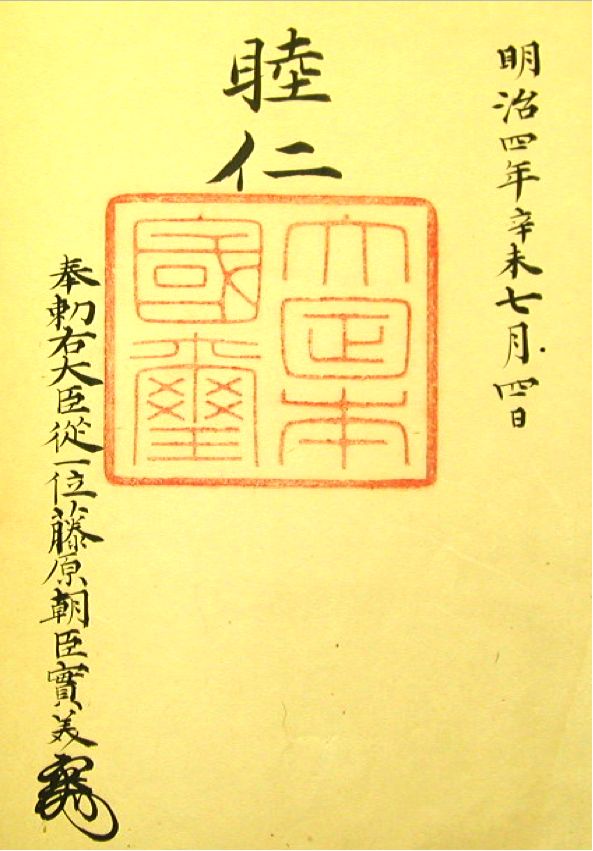 明治四年辛未七月四日
睦仁
大日本
國璽
奉勅右大臣從一位藤原朝臣實美